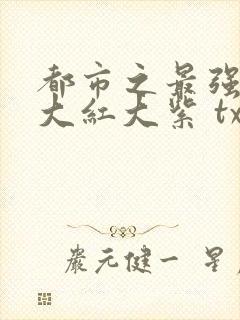 都市之最强
大紅大紫 tx
嚴元健一 星